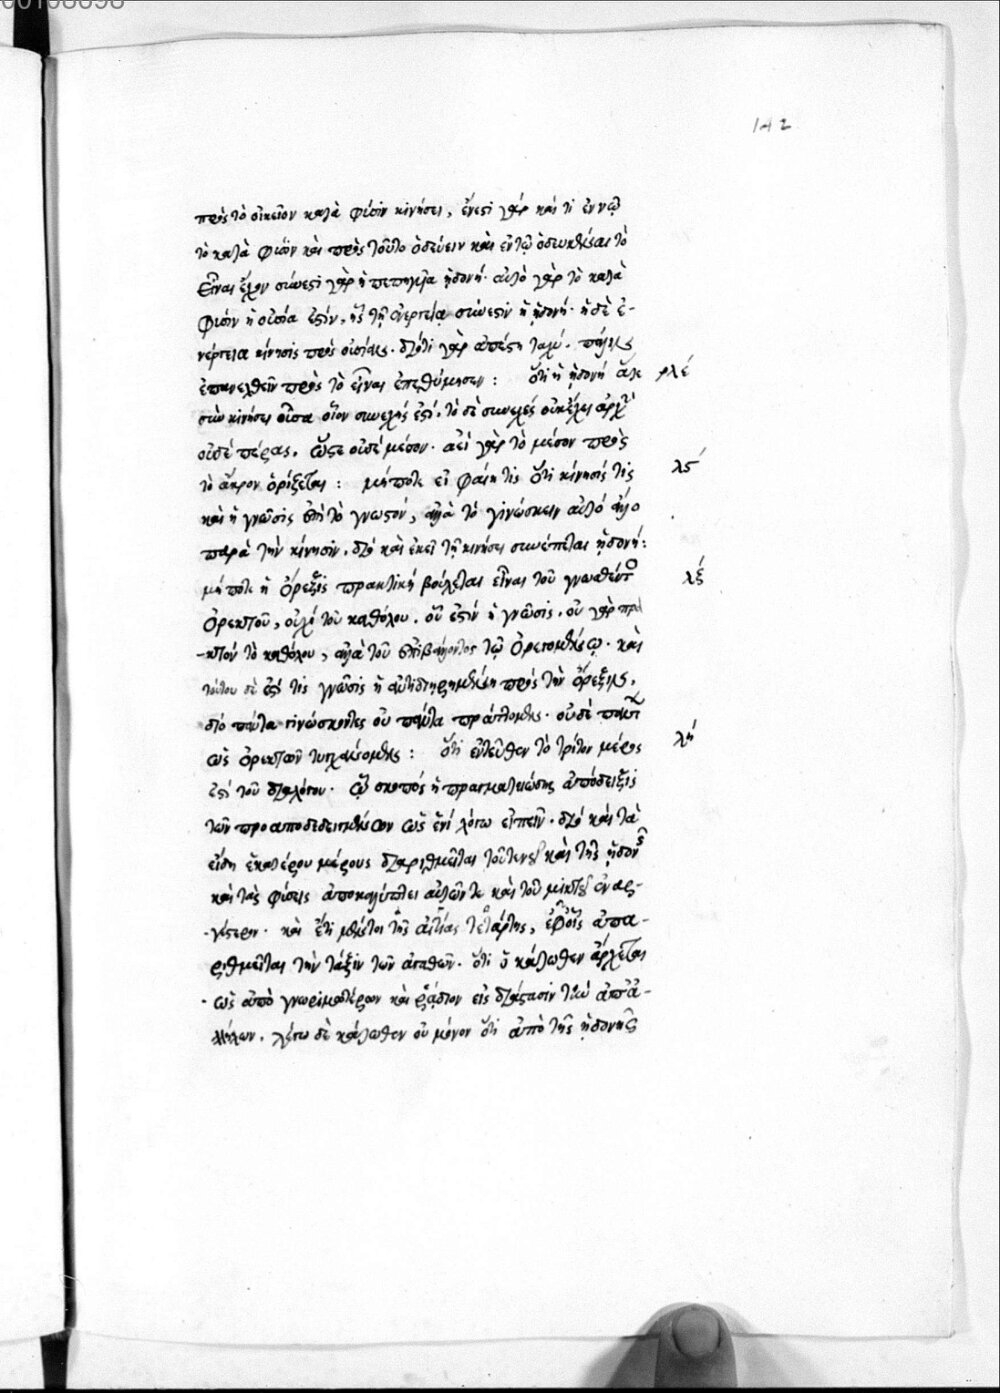 142
πρὸς τὸ οἰκεῖον κατὰ φύσιν κινήσει, ἔνεστι γάρ καί τι ἐν τῷ
τὸ κατὰ φύσιν καὶ πρὸς τοῦτο ὁδεύειν καὶ ἐν τῷ ὁδευθῆσαι τὸ
εἶναι ἔχον σύνεστι γὰρ ἡ πεπηγμένη ἡδονή. αὐτὸ γὰρ τὸ κατὰ
φύσιν ἡ οὐσία ἐστίν, ᾗ τῇ ἐνεργείᾳ σύνεστιν ἡ ἡδονή. ἡ δὲ ἐ-
νέργεια κίνησις πρὸς οὐσίας. διότι γὰρ ἀπέστη πάλιν
ἐπανελθεῖν πρὸς τὸ εἶναι ἐπεθύμησεν: ὅτι ἡ ἡδονὴ ἅτε ρλέ
σὺν κινήσει οὖσα οἷον συνεχής ἐστι, τὸ δὲ συνεχές οὐκ ἔχει ἀρχὴν
οὐδὲ πέρας, ὥστε οὐδὲ μέσον. ἀεὶ γὰρ τὸ μέσον πρὸς
τὸ ἄκρον ὁρίζεται: μήποτε εἰ φαίη τις ὅτι κίνησίς τις λϛ
καὶ ἡ γνῶσις ἐπὶ τὸ γνωστόν, ἀλλὰ τὸ γινώσκειν αὐτό ἄλλο
παρὰ τὴν κίνησιν. διὸ καὶ ἐκεῖ τῇ κινήσει συνέπεται ἡδονή:
μήποτε ἡ ὄρεξις πρακτικὴ βούλεται εἶναι τοῦ γνωσθέντος λζ
ὀρεκτοῦ, οὐχὶ τοῦ καθόλου, οὗ ἐστίν ἡ γνῶσις. οὐ γὰρ πρα
-κτόν τὸ καθόλου, ἀλλὰ τοῦ ἐπιβάλλοντος τῷ ὀρεγομένῳ. καὶ
τούτου δέ ἐστί τις γνῶσις ἡ ἀντιδιῃρημένη πρὸς τὴν ὄρεξιν,
διὸ πάντα γινώσκοντες οὐ πάντα πράττομεν. οὐδὲ πάντων
ὡς ὀρεκτῶν τυγχάνομεν: ὅτι ἐντεῦθεν τὸ τρίτον μέρος λη
ἐστὶ τοῦ διαλόγου. ᾧ σκοπός ἡ πραγματειώδης ἀπόδειξις
τῶν προαποδεδειγμένων ὡς ἑνὶ λόγῳ εἰπεῖν. διὸ καὶ τὰ
εἴδη ἑκατέρου μέρους διαριθμεῖται τοῦτε νοῦ καὶ τῆς ἡδονῆς
καὶ τὰς φύσεις ἀποκαλύπτει αὐτῶν τε καὶ τοῦ μικτοῦ ἐναρ-
γέστερον. καὶ ἔτι μέντοι τῆς αἰτίας τετάρτης, ἐφ' οἷς ἀπα-
ριθμεῖται τὴν τάξιν τῶν ἀγαθῶν. ὅτι κάτωθεν ἄρχεται
ὡς ἀπὸ γνωριμωτέρων καὶ ῥᾴδιον εἰς διάστασιν τὴν ἀπ' ἀλ-
λήλων. λέγω δὲ κάτωθεν οὐ μόνον ὅτι ἀπὸ τῆς ἡδονῆς